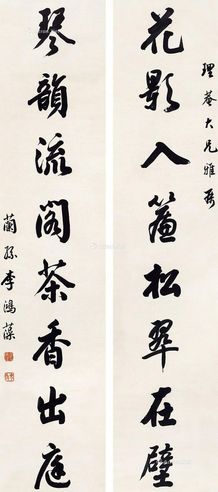 理菴大兄雅属
花影入簾松翠在壁
琴韻流閣茶香出庭
蘭孫李鴻藻